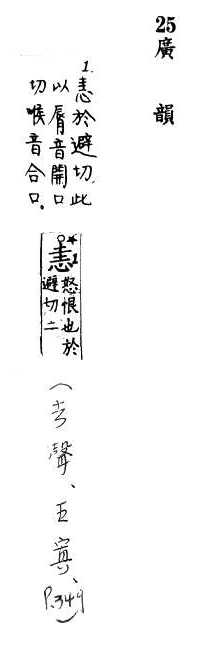 25 廣韻
1. 恚於避切,此
以脣音開口
切喉音合口。
恚1怒恨也於
避切二
(去聲、五寘、P.349)